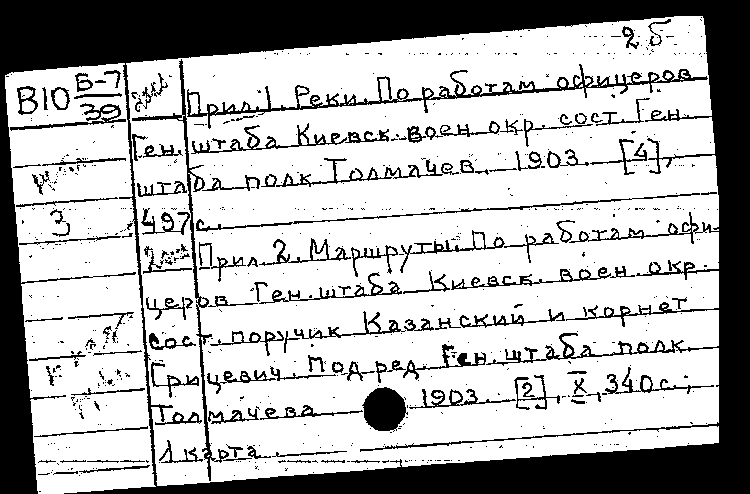 2 б
В10 Б-7/39 2 экз Прил. 1. Реки. По работам офицеров
Ген. штаба Киевск. воен. окр. сост. Ген.
штаба полк Толмачев. 1903. [4],
3 497 с.
2 экз Прил. 2. Маршруты. По работам офи-
церов Ген. штаба Киевск. воен. окр.
сост. поручик Казанский и корнет
Грицевич. Под ред. Ген. штаба полк.
Толмачева 1903. [2], X, 340 с.;
1 карта.